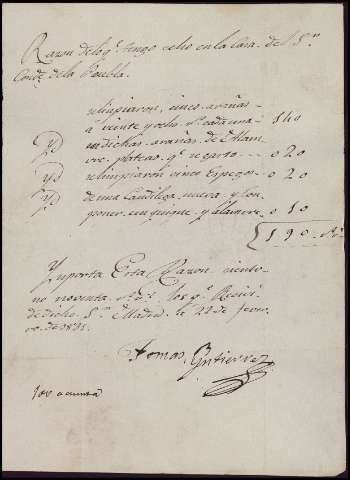 Razon de lo q.e tengo echo en la Casa del S.or
Conde de la Puebla.
se limpiaron, cinco arañas
a veinte y ocho r.s cada una 140
Yd en dichas arañas de alam
bre plateao q.e se gasto 020
Yd se limpiaron cinco espegos 020
Yd de una Candileja nueva y con
poner un quinque y alambre 010
190 R.s
Ymporta Esta Razon ciento
noventa los q.e Recivi
de dicho S.or Madrid 22 de
Tomas Gutierrez